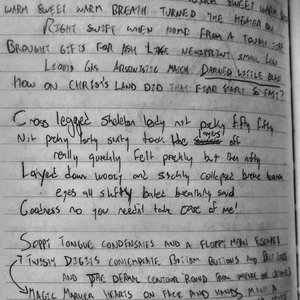 WARM SWEET WARM BREATH TURNED THE HEATER ON
RIGHT SWIFT WHEN HOME FROM A TOUGH TIME
BROUGHT GIFTS FOR ASH LIKE NEWSPRINT SMALL LOGS
LIQUID GAS ARSONISTIC MATCH DARNED LITTLE BLAZE
HOW ON CHRIST'S LAND DID THAT FIRE START SO FAST?
Cross legged skeleton lady not pretty fifty fifty
Nit picky forty sixty took the layers off
really quickly felt prickly but then nifty
Layed down woozy and stickly collapsed broke
eyes all shifty baled breathily said
Goodness no you needn't take care of me!
SOPPY TONGUE CONDENSATION AND A FLOPPY MOON ESCAPES
TWISTY DIGITS CONTEMPLATE BOTTOM BUTTONS AND BELT LOOPS
AND THE DERMAL CONTOUR ROUND FROM
MAGIC MARKER HEARTS ON FACE AND HANDS MINT A